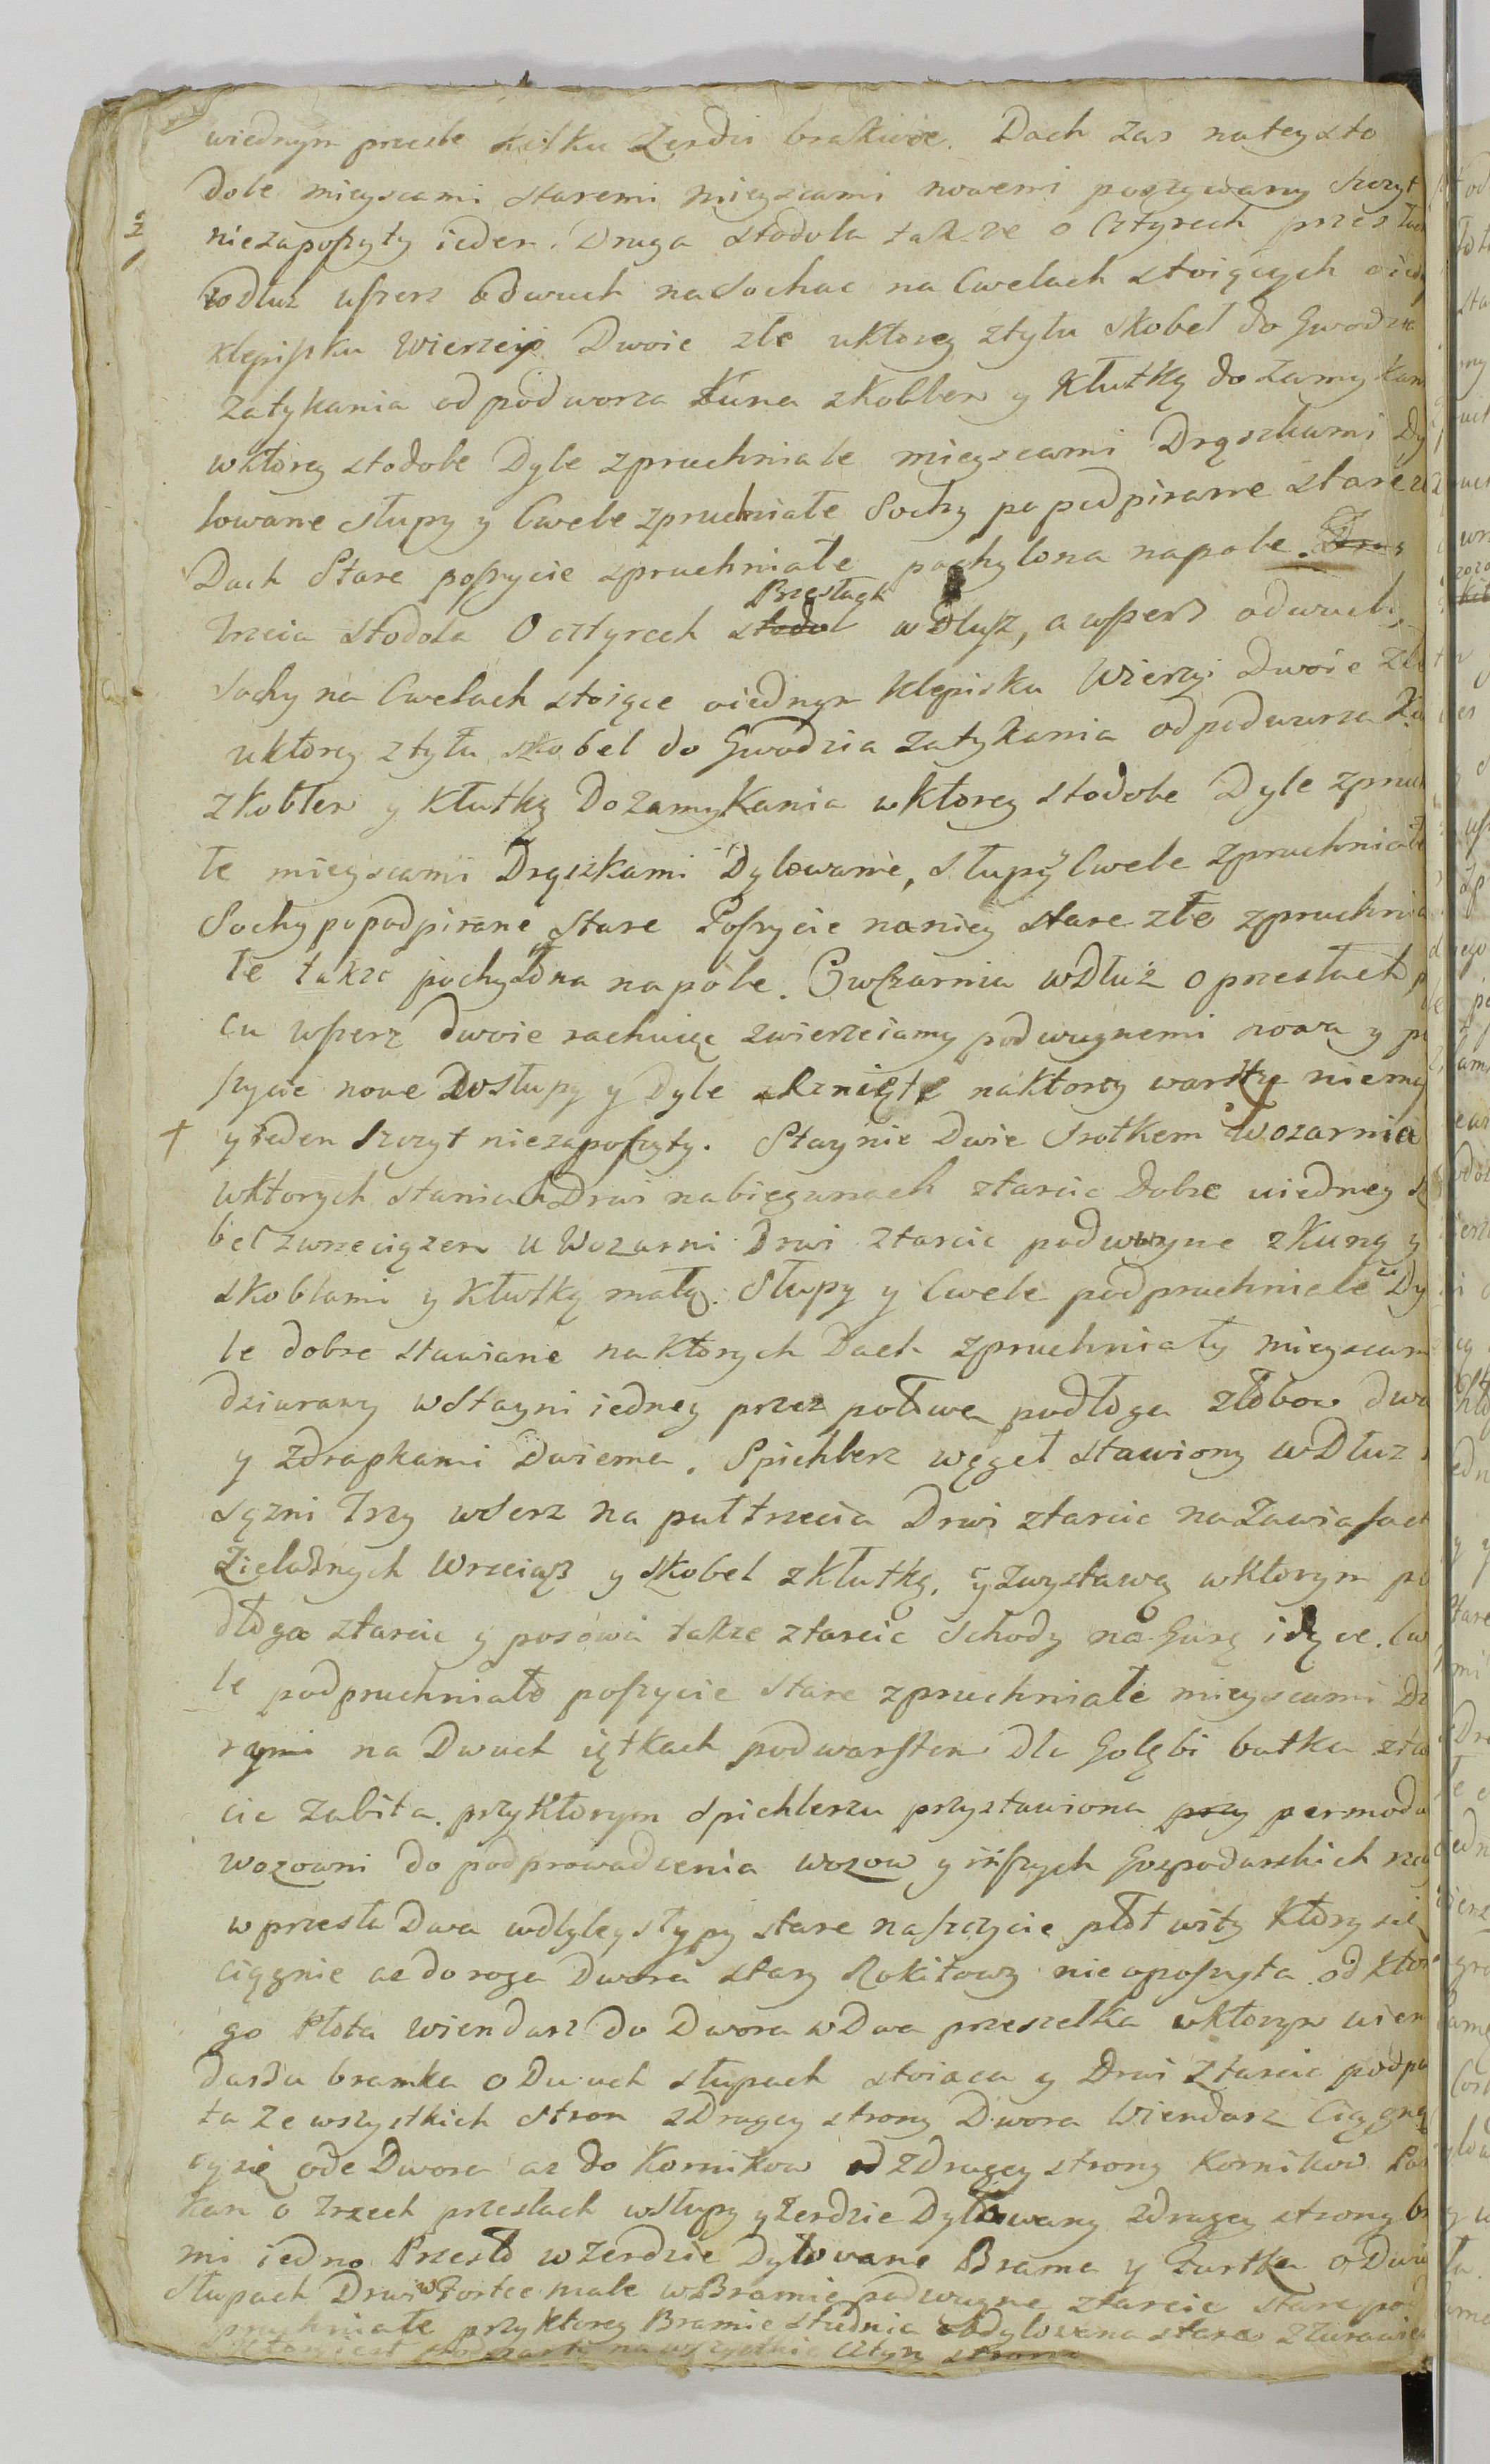 wiednym przesle kilku Zerdzi brakuie. Dach zas nateysto
dole mieyscami staremi mieyscami nowemi poszywany szczyt
niezaposzyty ieden. Druga stodola takze o Cztyrech przesłach
wdluz wszerz odwuch naSochac na Cwelach stoiących oied
klepisku Wierzeie Dwoie złe uktorey ztylu skobel do Gwozdzia
Zatykania odpodworza Kuna zkoblem y Kłutką do Zamykan
wktorey stodole Dyle zpruchniałe mieyscami Drąszkami Dy
lowane słupy y Cwele zpruchniałe Sochy popodpirane stare
Dach Stare poszycie spruchniałe pochylona napole.
Brzesłach
Trzecia stodola O cztyrech stodol wDłusz, a wszerz odwuch,
Sochy na Cwelach stoiące oiednym klepisku Wierzei Dwoie złe
uktorey ztyłu szkobel do Gwozdzia Zatykania odpodwurza
Zkoblem y Kłutką Dozamykania wktorey stodole Dyle zpruch
łe mieyscami Drąszkami Dylowanie, słupy y Cwele zpruchniałe
Sochy popodpirane stare Poszycie naniey stare złe zpruchnia
łe także pochyłona napole. Owczarnia wDłuż o przesłach
cu wszerz dwoie rachuiąc zwierzeiamy podwuynemi nowa y po
szycie nowe Wsłupy y Dyle rznięte naktorey warszty niemasz
† y ieden szczyt niezaposzyty. Staynie Dwie srotkem Wozarnia
wktorych staniach Drzwi nabiegunach ztarcic Dobre uiedney sko
bel zwrzeciązem u Wozarni Drzwi ztarcic podwoyne zkuną y
skoblami y Kłutką małą. Słupy y Cwele podpruchniałe Dy
le dobre stawiane naktorych Dach zpruchniały mieyscami
dziurawy wStayni iedney przez połowe podłoga złobow dwa
y Zdrapkami Dwiema. Spichlerz węgeł stawiony wDłuz
sęzni Trzy wserz na puł trzecia Drzwi ztarcic naZawiasach
Zielaznych Wrzeciąsz y skobel zKłutką, y zwystawą wktorym po
dłoga ztarcic y posowa także ztarcic Schody na Gurę idące. Cw
le podpruchniałe poszycie stare zpruchniałe mieyscami Dz
rami na Dwuch iętkach podwarsztem Dla Gołębi butka ztar
cic Zabita. przyktorym spichlerzu przystawiona przy
wozowni do podprowadzenia wozow y inszych Gospodarskich rzeczy
wprzesła Dwa wdyley słypy stare naszczycie płot wity Który się
ciągnie az doroga Dwora stary Rokitowy nie oposzyta od ktore
go Płota Wiendarz do Dwora wDwa przesełka wktorym wien
darzu bramka oDwuch słupach stoiaca y Drzwi Ztarcic podpar
ta Ze wszystkich stron zDrugey strony Dwora Wiendarz Ciągną
cysię ode Dwora az do Kornikow od zDrugey strony Kornikow Par
kan o Trzech przesłach wsłupy yZerdzie Dyłowany zdrugey strony br
mi iedno Przesło wZerdzie Dylowane Brama y Furtka oDwu
słupach Drzwi wFortce małe wBramie podwuyne ztarcic stare po
pruchniałe przyktorey Bramie studnia obdylowana stara Zzurawiem
podparta nawszystkie Cztyry strony